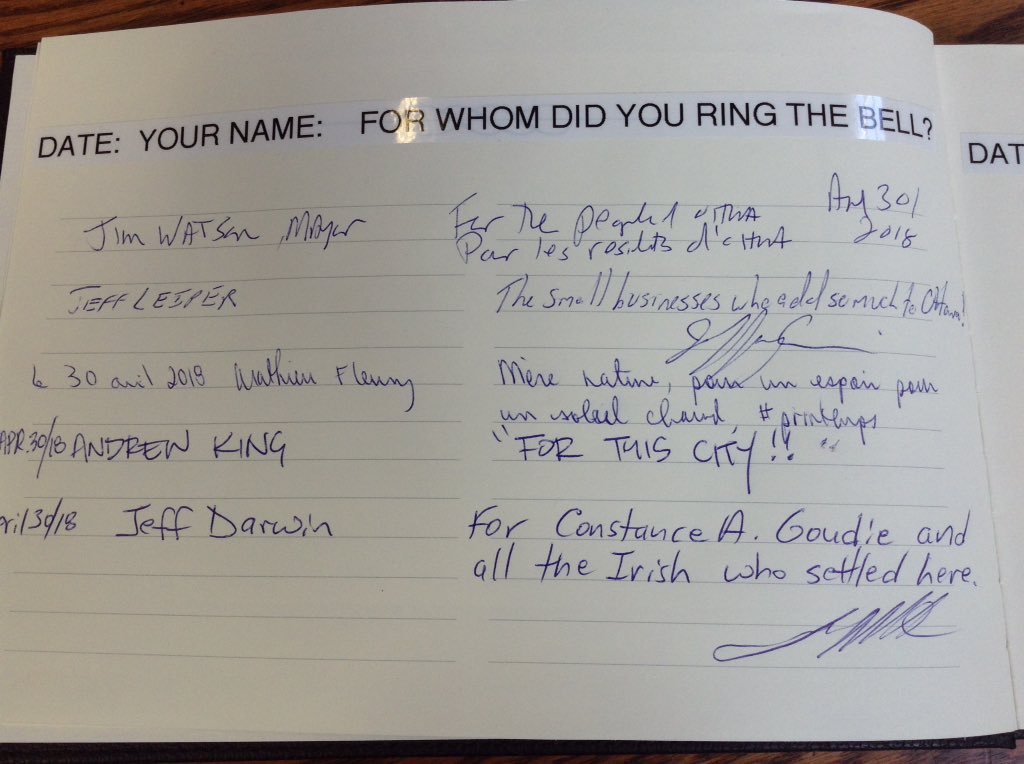 DATE: YOUR NAME: FOR WHOM DID YOU RING THE BELL?
DAT
Jim WATSON, Mayor For the people of OTTAWA
Par les résidents d'OTTAWA
April 30/
2018
JEFF LEIPER The small businesses who add so much to Ottawa!
Le 30 avril 2018 Mathieu Fleury Mère nature, pour un espoir pour
un soleil chaud, #printemps
APR.30/18 ANDREW KING "FOR THIS CITY!!"
pril 30/18 Jeff Darwin For Constance A. Goudie and
all the Irish who settled here.